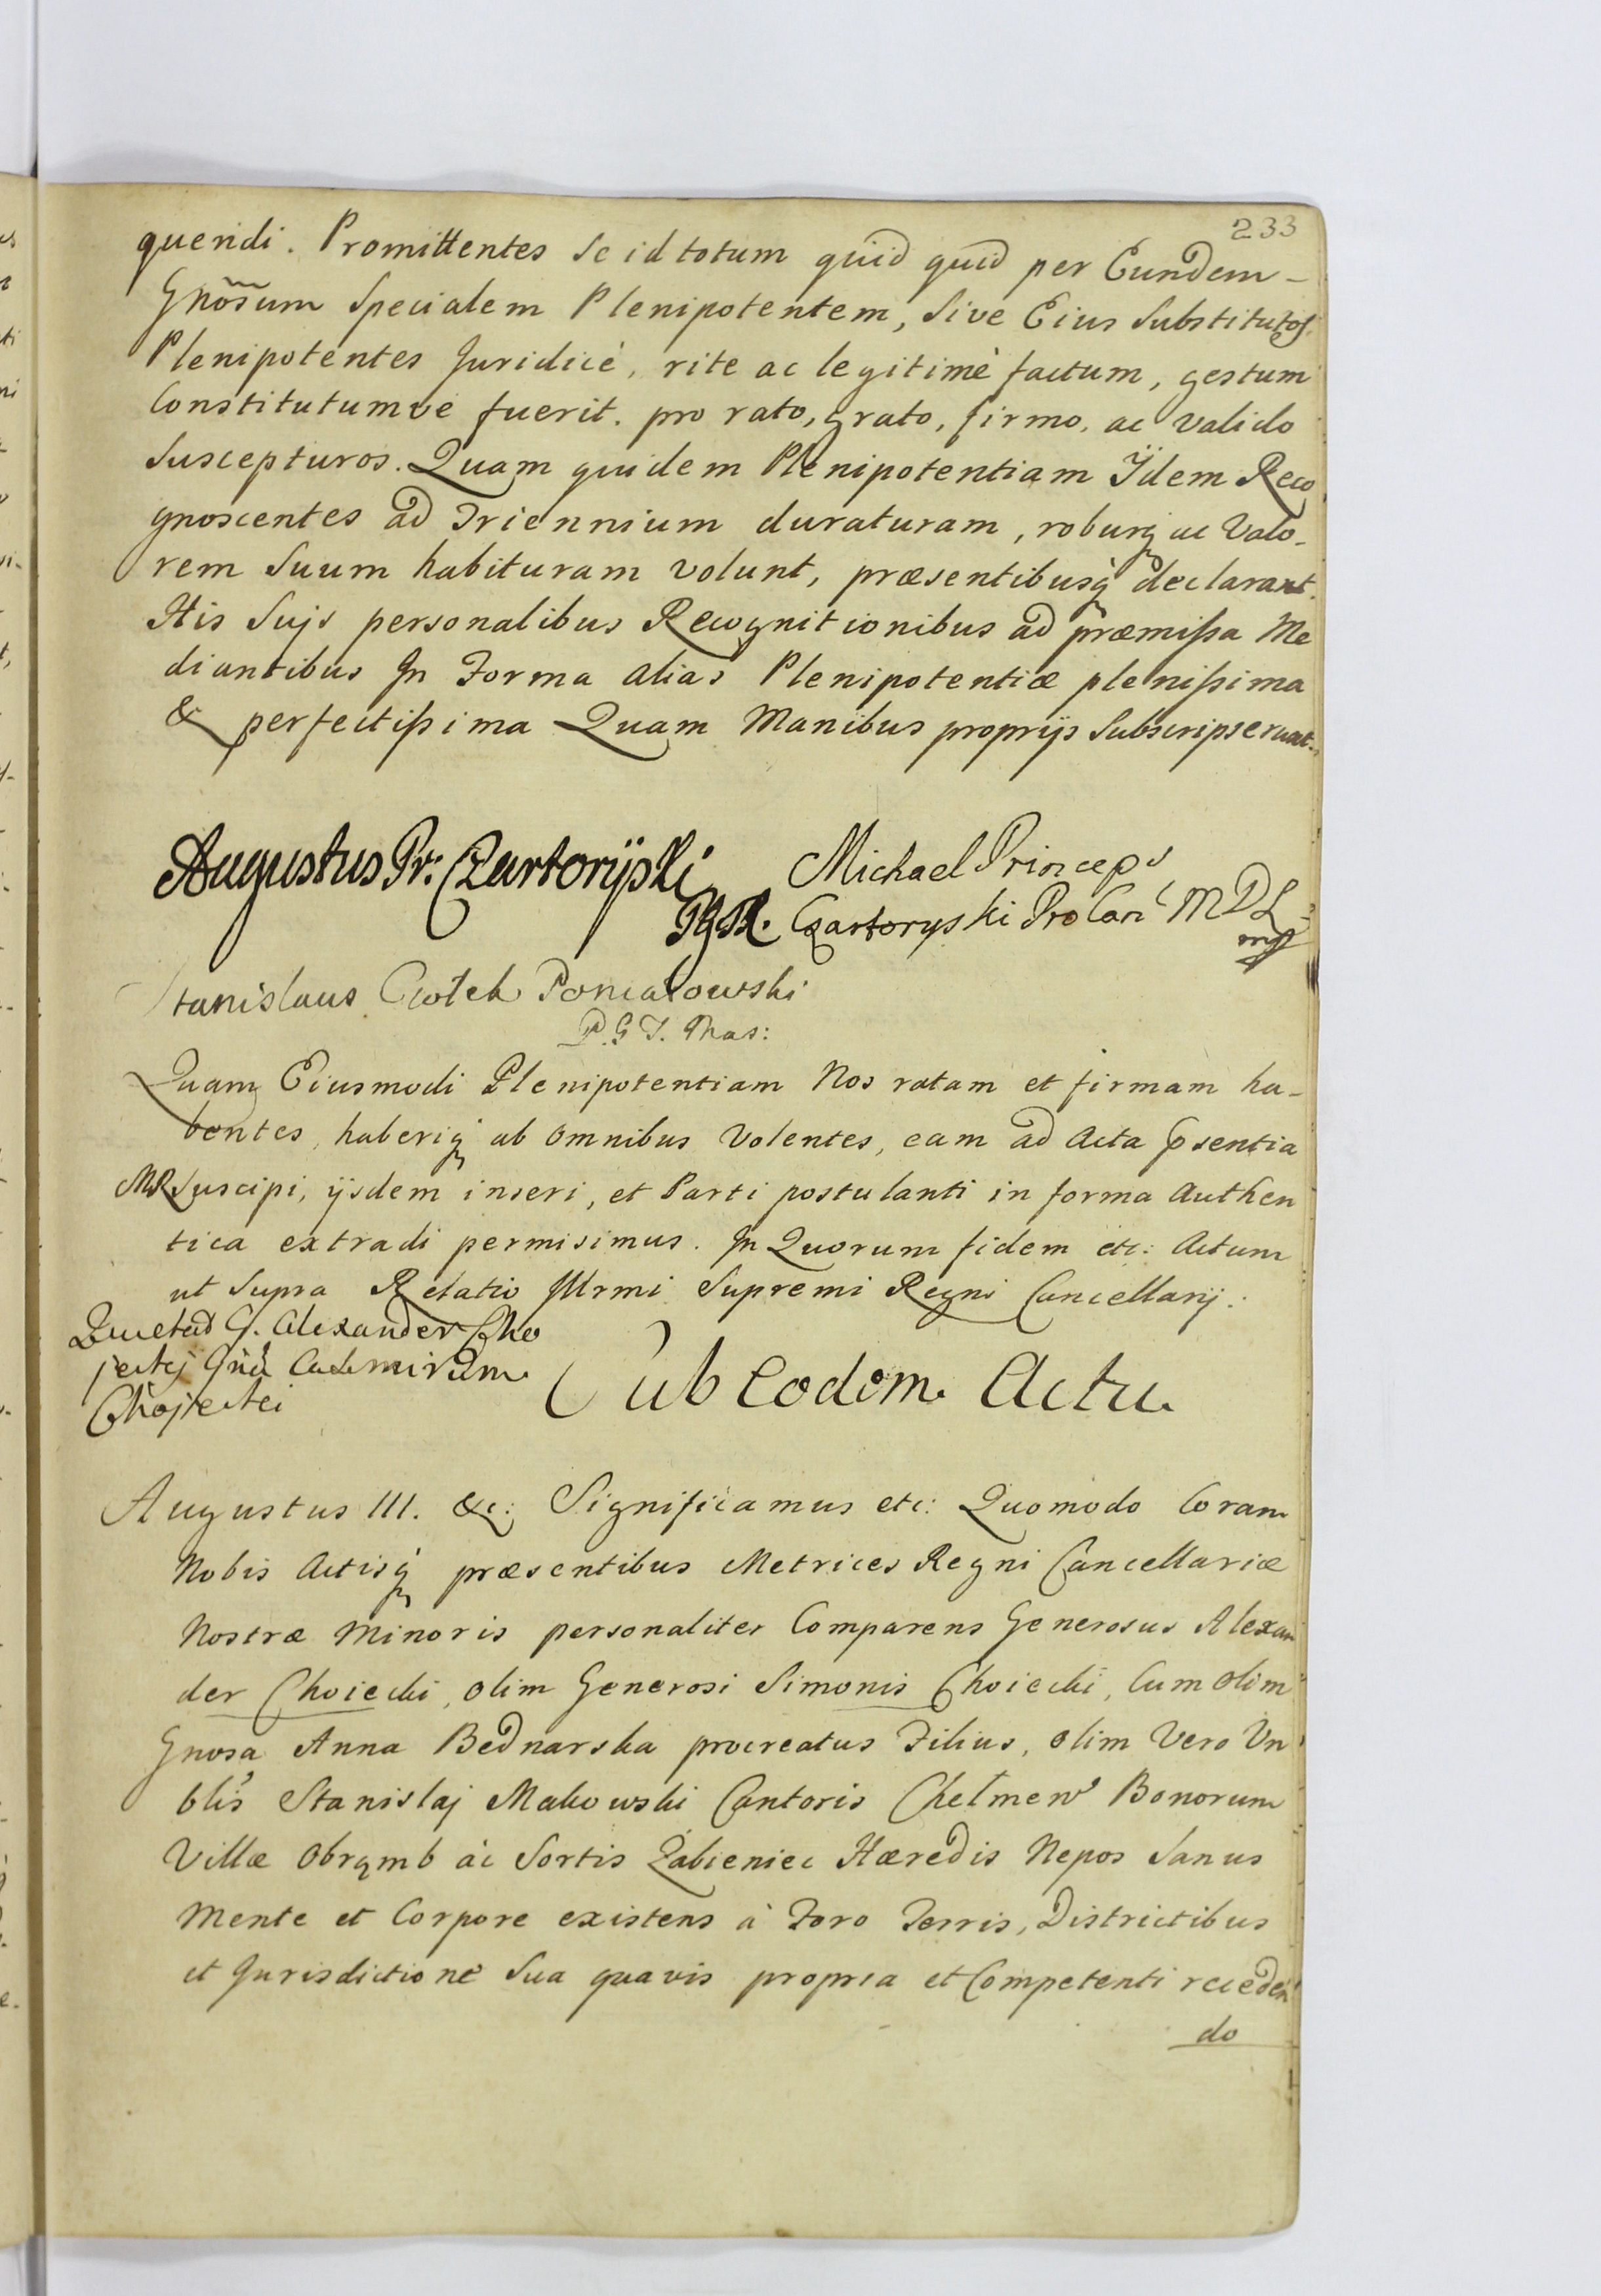 233
queridi. Promittentes Se id totum quid quid per Eundem-
Gnosum Specialem Plenipotentem, Sive Eius Substitutos
Plenipotentes Juridicè, rite ac legitimè factum, gestum
Constitutumve fuerit. pro rato, grato, firmo, ac valido
Suscepturos. Quam quidem Plenipotentiam Ijdem Reco
gnoscentes ad Triennium duraturam, roburq ac Valo-
rem Suum habituram volunt, præsentibusq declarant.
His Sujs personalibus Recognitionibus ad præmissa Me
diantibus In Forma alias Plenipotentiæ plenissima
& perfectissima Quam Manibus proprijs Subscripserunt.
Augustus Pr: Czartoryski Michael Princeps
PGR. Czartoryski ProCan MDL
mp
Stanislaus Ciołek Poniatowski
P.G.T. Mas:
Quam Eiusmodi Plenipotentiam Nos ratam et firmam ha-
bentes, haberiq ab omnibus Volentes, eam ad Acta psentia
MR Suscipi, ijsdem inseri, et Parti postulanti in forma Authen
tica extradi permisimus. In Quorum fidem etc: Actum
ut Supra Relatio Illrmi Supremi Regni Cancellarij.
Quietat G. Alexander Cho
jecky Gnũ Casimirum
Chojecki
Sub Eodem Actu
Augustus III. &c: Significamus etc: Quomodo Coram
Nobis Actisq præsentibus Metrices Regni Cancellariæ
Nostræ Minoris personaliter Comparens Generosus Alexan
der Choiecki, olim Generosi Simonis Choiecki, Cum olim
Gnosa Anna Bednarska procreatus Filius, olim Vero Vn
blis Stanislaj Makowski Cantoris Chełmen Bonorum
Villæ Obrąmb ac Sortis Żabieniec Hæredis Nepos Sanus
Mente et Corpore existens à Foro Terris, Districtibus
et Jurisdictione Sua quavis propria et Competenti receden
do